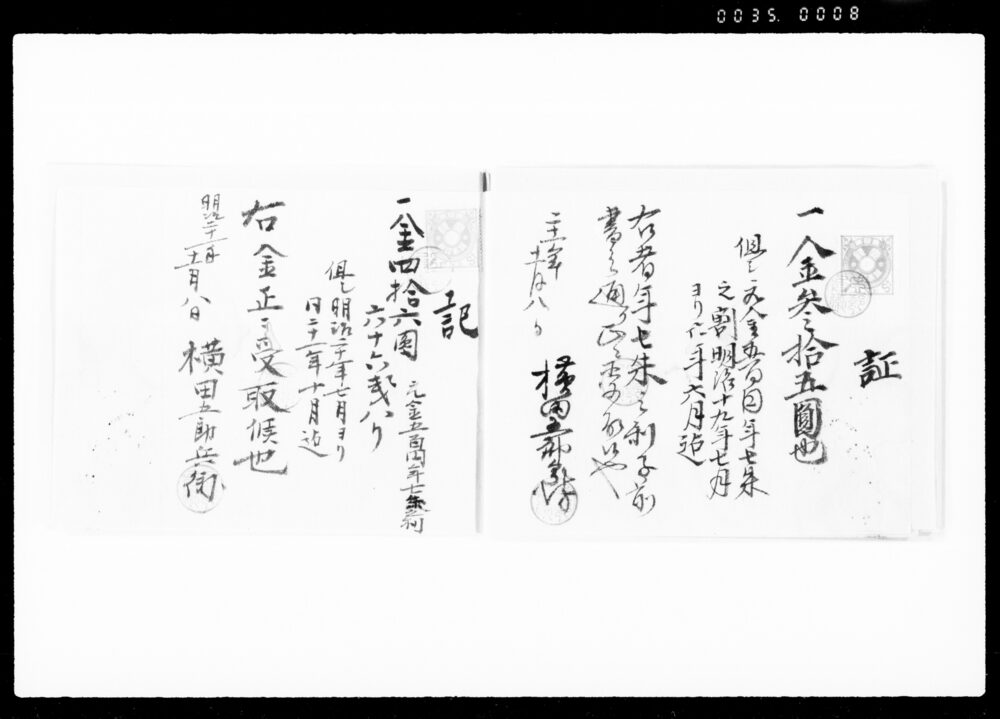 0035. 0008
証
一金叁拾五圓也
但シ元金五百円年七朱
之割明治十九年七月
ヨリ仝年六月迄
右者年七朱之利子前
書之通り正ニ受取候也
二十一年十一月八日
横田五郎兵衛
記
一金四拾六圓
六十六銭八り
元金五百円年七朱之利
但シ明治二十年七月ヨリ
同二十一年十月迄
右金正ニ受取候也
明治二十一年
十一月八日
横田五郎兵衛